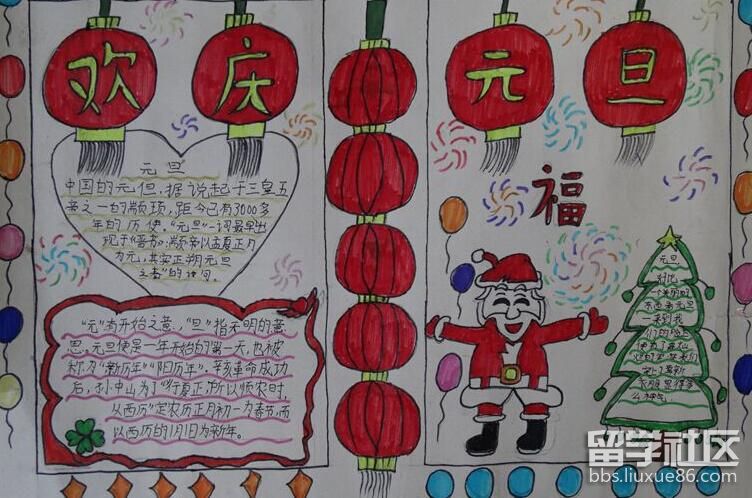 欢庆
元旦
元旦
中国的元但，据说起于三皇五
帝之一的颛顼，距今已有3000多
年的历史。"元旦"一词最早出
现于《晋书》：颛帝以孟夏正月
为元，其实正朔元旦
之春"的诗句。
"元"有开始之意，"旦"指天明的意
思。元旦便是一年开始的第一天，也被
称为"新历年""阳历年"。辛亥革命成功
后，孙中山为了"行夏正，所以顺农时，
从西历"定农历正月初一为春节，而
以西历的1月1日为新年。
福
元旦，
一个美丽的
一来到我
们的
么神气
留学社区
bbs.liuxue86.com